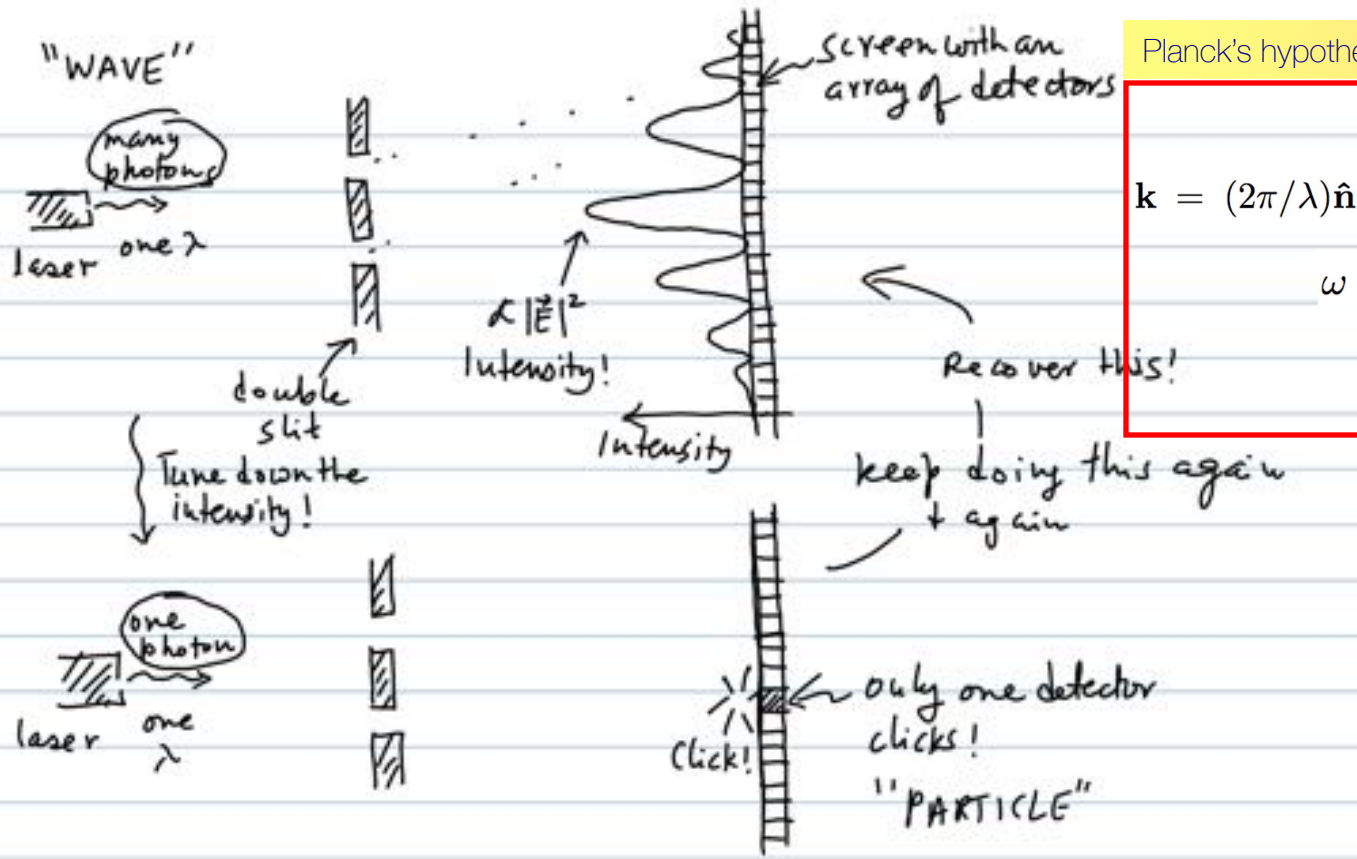 "WAVE"
many
photons
one λ
laser
double
slit
Tune down the
intensity!
∝ |E⃗|²
Intensity!
Intensity
screen with an
array of detectors
Planck's hypothe
k = (2π/λ)n̂
ω
Recover this!
keep doing this again
+ again
one
photon
laser
one
λ
Click!
only one detector
clicks!
"PARTICLE"